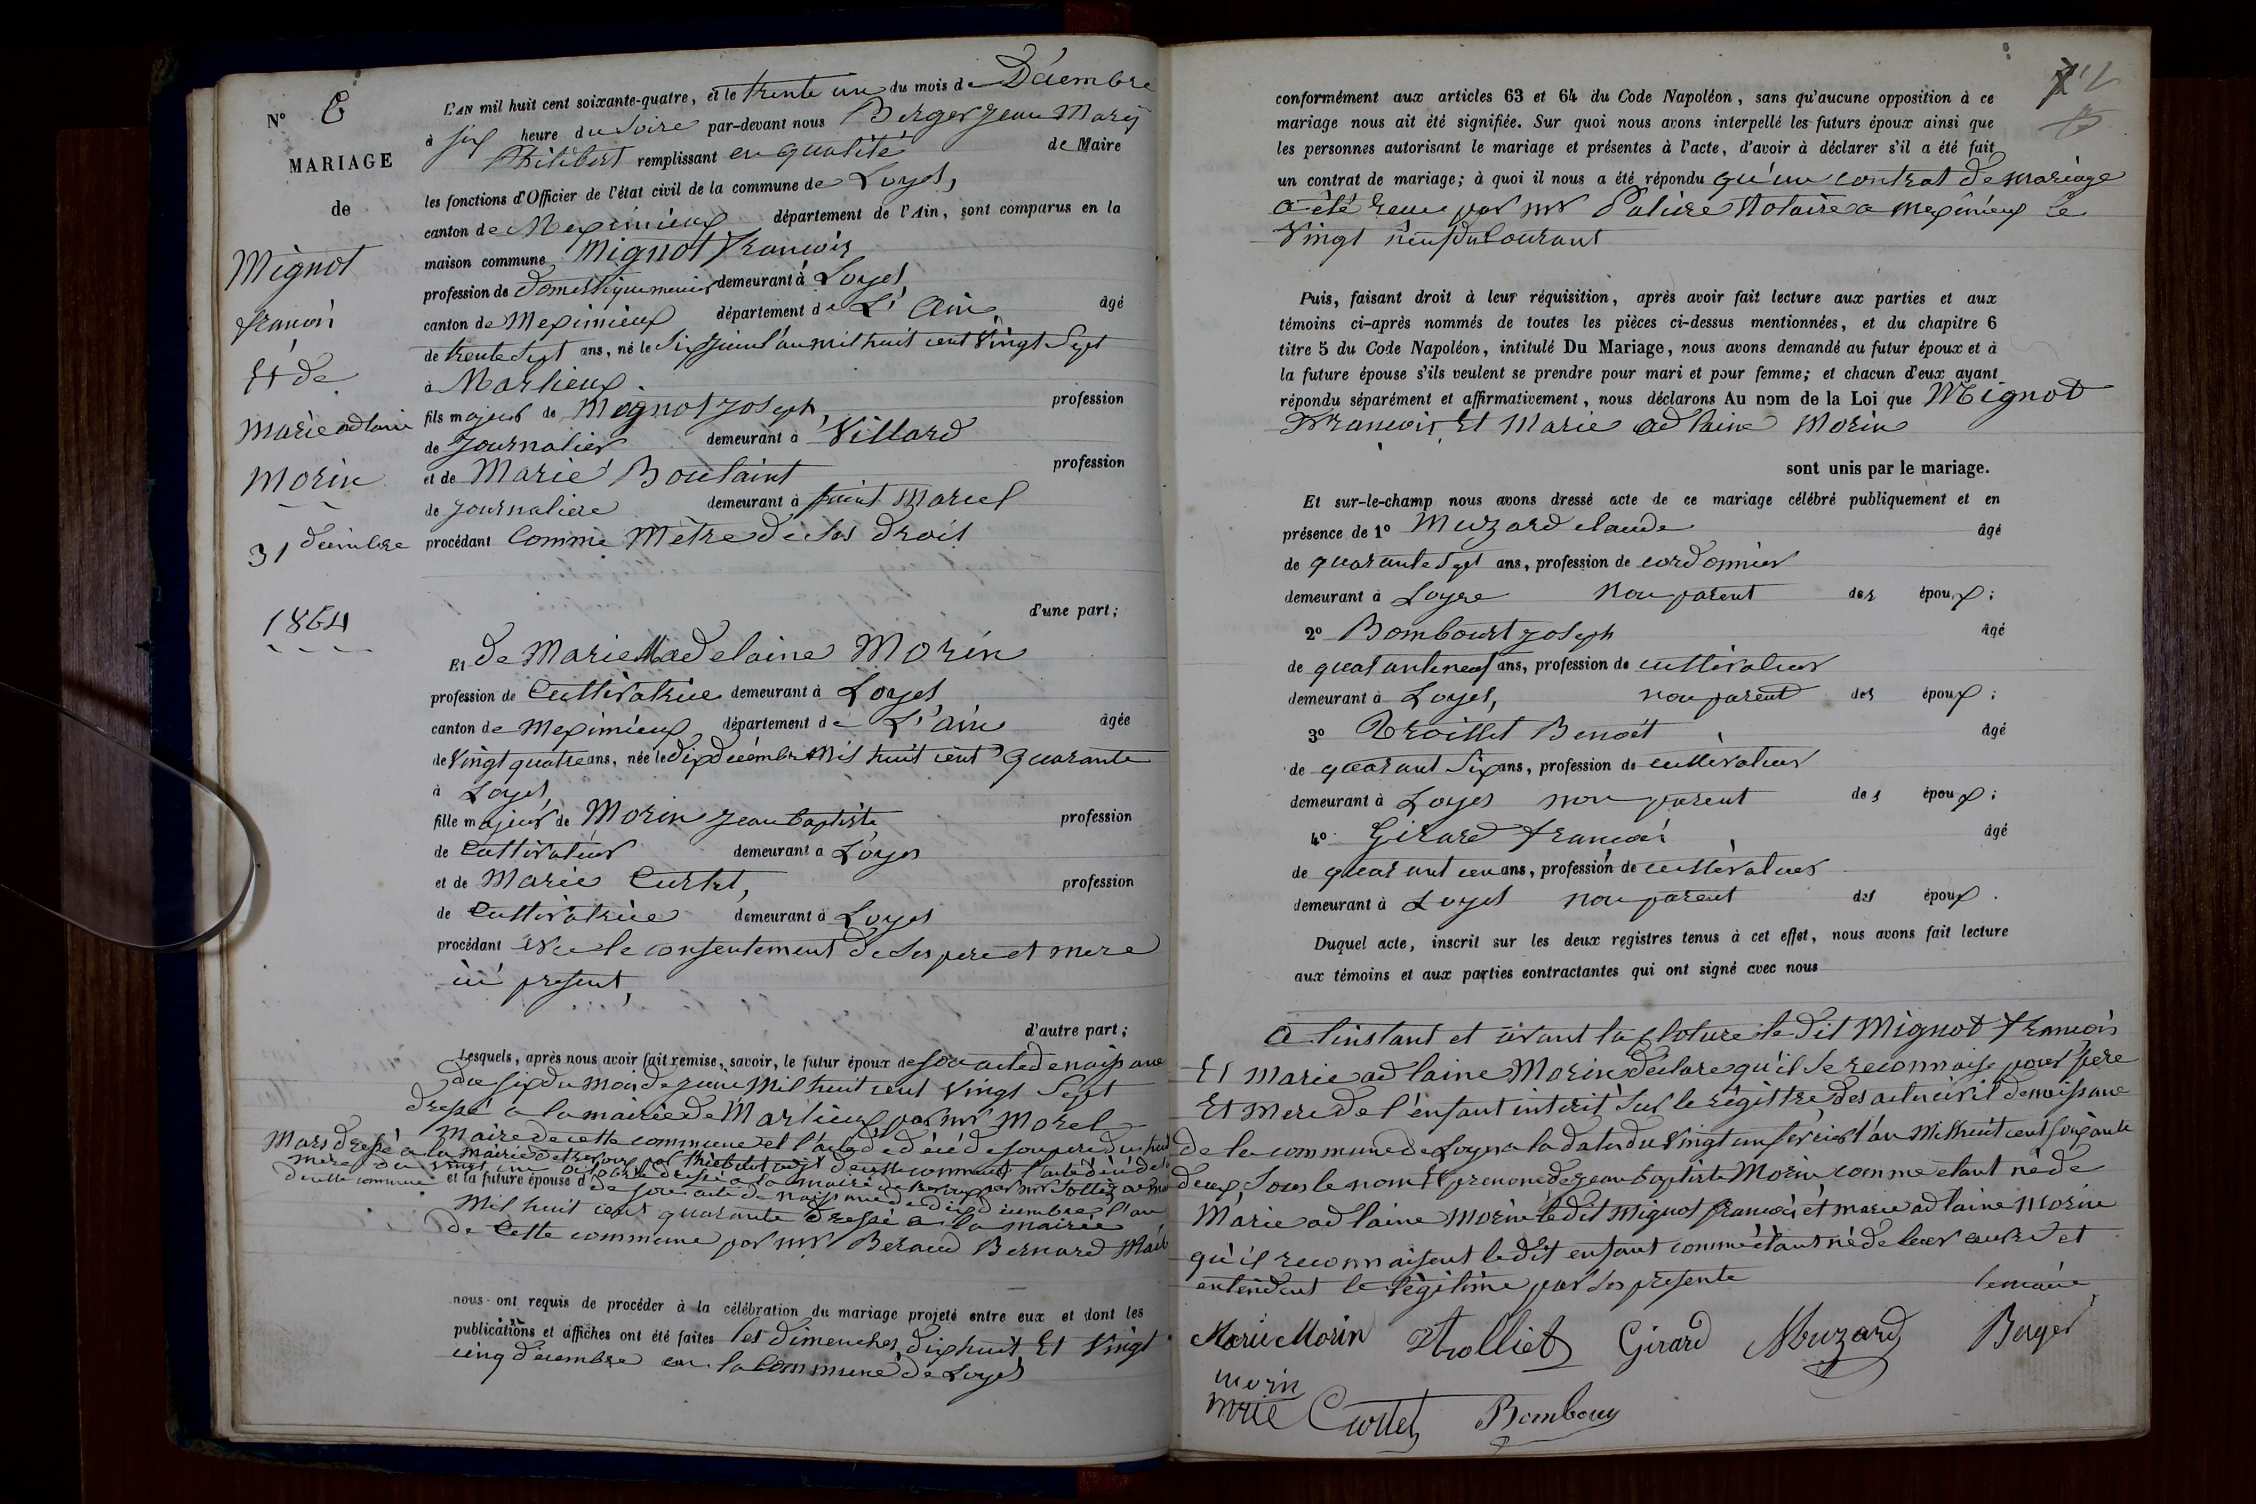 N° 6
MARIAGE
de
Mignot
francois
Et de
Marie adlaine
Morin
31 decimbre
1864
L'AN mil huit cent soixante-quatre, et le trente un du mois de Décembre
à six heure du Soire par-devant nous Berger Jean Mary
Philibert remplissant en qualité de Maire
les fonctions d'Officier de l'état civil de la commune de Loyes,
canton de Meximieux département de l'Ain, sont comparus en la
maison commune Mignot Francois
profession de domestique meunier demeurant à Loyes,
canton de Meximieux département de L'Ain âgé
de trente Sept ans, né le Six Juin l'an mil huit cent Vingt Sept
à Marlieux.
fils majeur de Mignot Joseph, profession
de Journalier demeurant à Villard
et de Marie Boulaint profession
de Journaliere demeurant à saint Marcel
procédant Comme Mètre de ses droit
d'une part;
Et de Marie Madelaine Morin
profession de Cultivatrice demeurant à Loyes,
canton de Meximieux département de L'ain âgée
de Vingt quatre ans, née le dix decémbre Mil huit cent Quarante
à Loyes,
fille majeur de Morin Jean baptiste profession
de Cultivateur demeurant à Loyes
et de Marie Curtet, profession
de Cultivatrice demeurant à Loyes
procédant avec le consentement de ses pere et mere
ici present,
d'autre part;
Lesquels, après nous avoir fait remise, savoir, le futur époux de son acte de naissance
du six du mois de Juin Mil huit cent Vingt Sept
dressé a la mairie de Marlieux par mr Morel
Maire de cette commune et l'acte de décé de son pere du huit
Mars dressé a la mairie de par de cette commune l'acte décé de sa
mère du vingt un octobre dressé a la mairie de par mr maire
de cette commune et la future épouse d de son acte de naissance du dix decembre l'an
Mil huit cent quarante dressé a la mairie
de Cette commune par mr Beraud Bernard Maire
nous ont requis de procéder à la célébration du mariage projeté entre eux et dont les
publications et affiches ont été faites les dimenches dixhuit Et Vingt
cinq décembre en la Commune de Loyes
conformément aux articles 63 et 64 du Code Napoléon, sans qu'aucune opposition à ce
mariage nous ait été signifiée. Sur quoi nous avons interpellé les futurs époux ainsi que
les personnes autorisant le mariage et présentes à l'acte, d'avoir à déclarer s'il a été fait
un contrat de mariage; à quoi il nous a été répondu qu'un contrat de mariage
a été recue par mr Notaire a meximieux le
Vingt neuf du Courant
Puis, faisant droit à leur réquisition, après avoir fait lecture aux parties et aux
témoins ci-après nommés de toutes les pièces ci-dessus mentionnées, et du chapitre 6
titre 5 du Code Napoléon, intitulé Du Mariage, nous avons demandé au futur époux et à
la future épouse s'ils veulent se prendre pour mari et pour femme; et chacun d'eux ayant
répondu séparément et affirmativement, nous déclarons Au nom de la Loi que Mignot
Francois, Et Marie adlaine Morin
sont unis par le mariage.
Et sur-le-champ nous avons dressé acte de ce mariage célébré publiquement et en
présence de 1° Muzard claude âgé
de quarante Sept ans, profession de cordonnier
demeurant à Loyse Non parent des époux;
2° Bombourt Joseph âgé
de quarante neuf ans, profession de cultivateur
demeurant à Loyes, non parent des époux;
3° Trolliet Benoit âgé
de quarant Six ans, profession de cultivateur
demeurant à Loyes non parent des époux;
4° Girard francois âgé
de quarant un ans, profession de cultivateur
demeurant à Loyes non parent des époux.
Duquel acte, inscrit sur les deux registres tenus à cet effet, nous avons fait lecture
aux témoins et aux parties contractantes qui ont signé avec nous
A linstant et avant la Cloture le dit Mignot francois
Et Marie adlaine Morin declare qu'il se reconnaise pour pere
Et Mere de l'enfant interit sur le régittre des acte civil de naissance
de la commune de Loyes a la date du Vingt un fevrier l'an Mil huit cent soixante
deux, Sous le nom Et prenom de Jean baptiste Morin comme etant né de
Marie adlaine Morin le dit Mignot francois et marie adlaine Morin
qu'il reconnaisent le dit enfant comme étant né de leur œuvre et
entendent le légitime par ses presente
le maire
Marie Morin Trolliet Girard Muzard Berger
morin
Marie Curtet Bombour